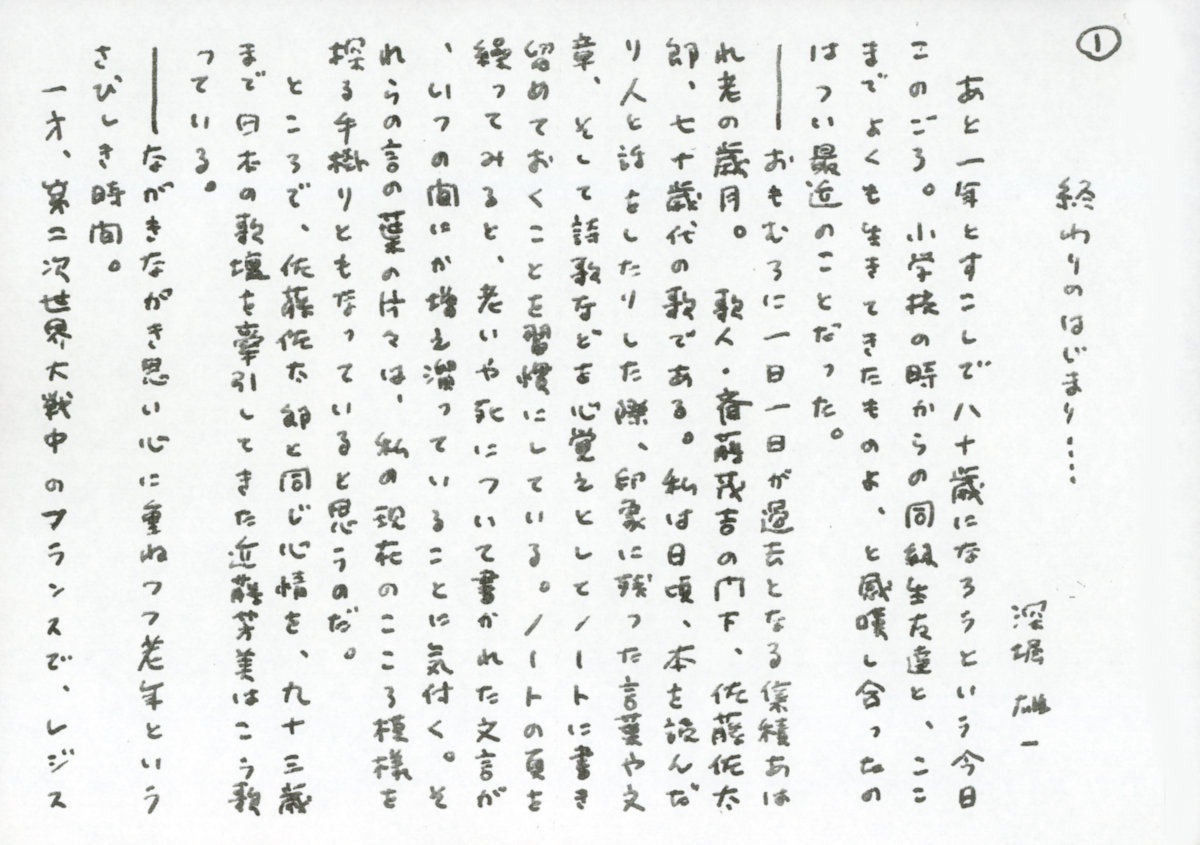 ①
終わりのはじまり‥‥
深堀 雄一
あと一年とすこしで八十歳になろうという今日
このごろ。小学校の時からの同級生友達と、ここ
までよくも生きてきたものよ、と感嘆し合ったの
はつい最近のことだった。
──おもむろに一日一日が過去となる集積あは
れ老の歳月。 歌人・斎藤茂吉の門下、佐藤佐太
郎、七十歳代の歌である。私は日頃、本を読んだ
り人と話をしたりした際、印象に残った言葉や文
章、そして詩歌などを心覚えとしてノートに書き
留めておくことを習慣にしている。ノートの頁を
繰ってみると、老いや死について書かれた文言が
、いつの間にか増え溜っていることに気付く。そ
れらの言の葉の片々は、私の現在のこころ模様を
探る手掛りともなっていると思うのだ。
ところで、佐藤佐太郎と同じ心情を、九十三歳
まで日本の歌壇を牽引してきた近藤芳美はこう歌
っている。
──ながきながき思い心に重ねつつ老年という
さびしき時間。
一方、第二次世界大戦中のフランスで、レジス